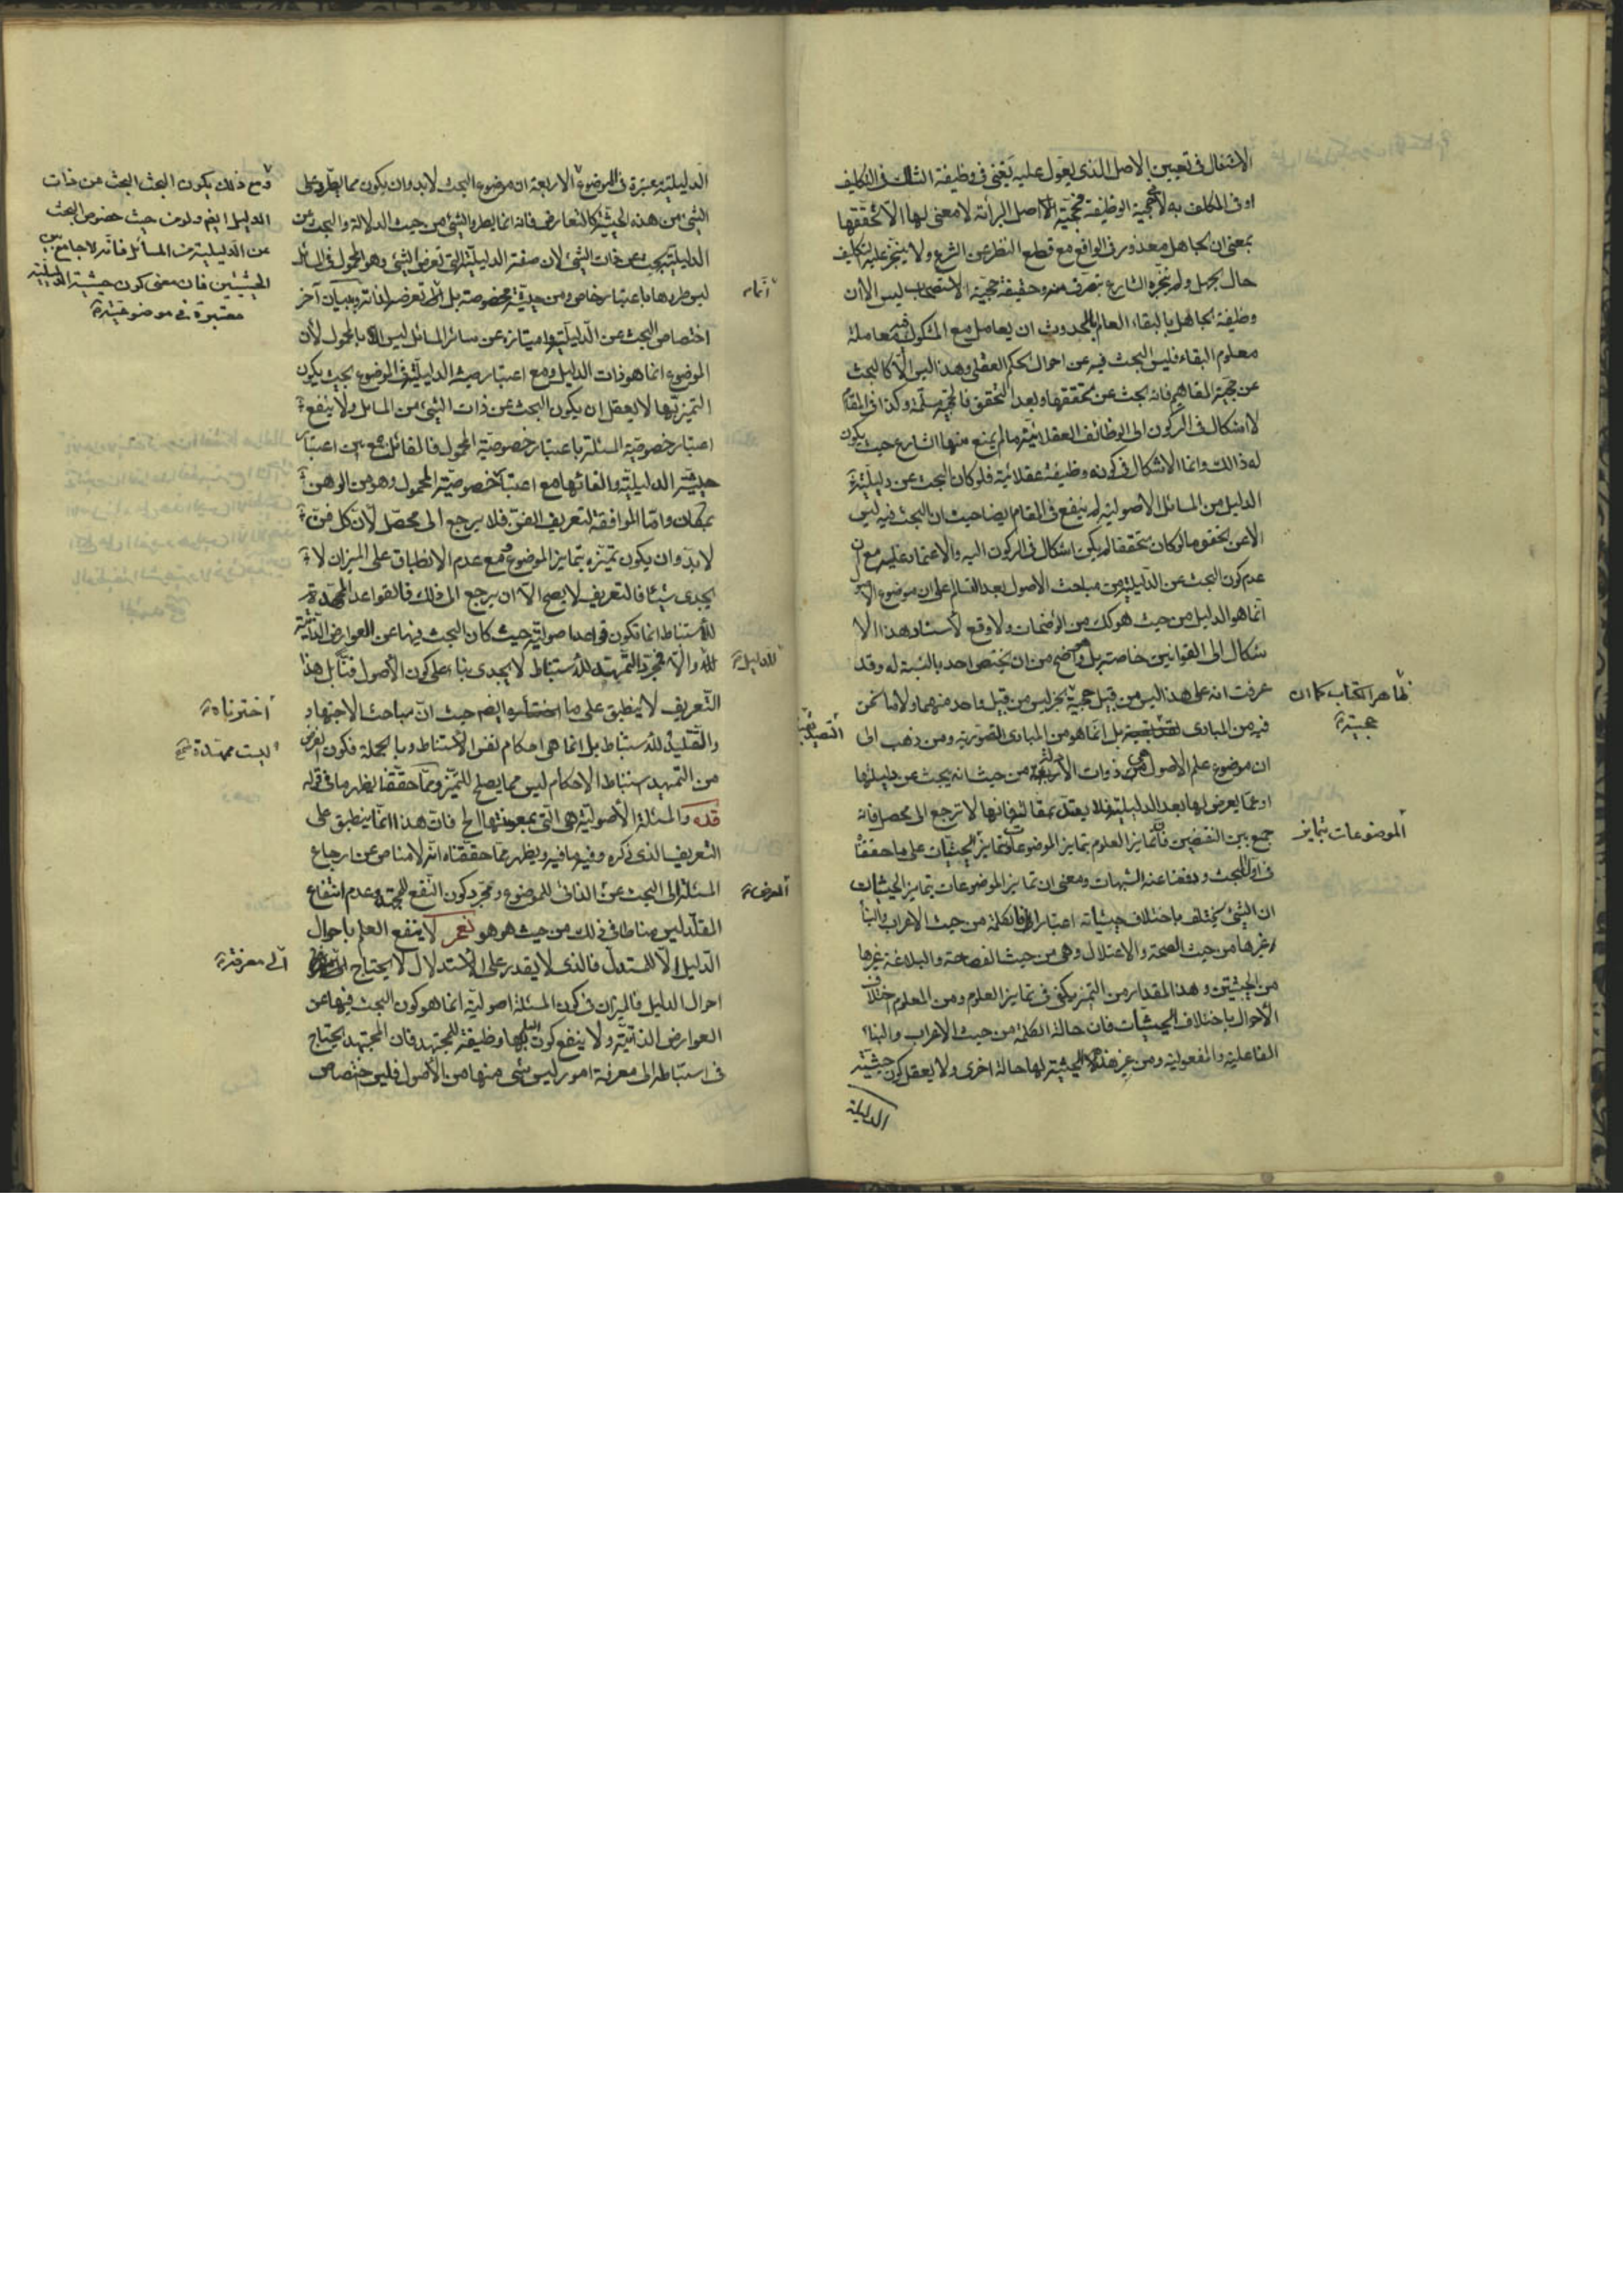 الاشغال فى تعيين الاصل الذى يعول عليه يغنى فى وظيفة الشاك فى التكليف
او فى المكلف به لا حجية الوظيفة فحجية اصل البرائة لا معنى لها الا تحققها
بمعنى ان الجاهل معذور فى الواقع مع قطع النظر عن الشرع ولا يتنجز عليه التكليف
حال الجهل ولم ينجزه الشارع بتصرف منه وحقيقة حجية الاستصحاب ليس الا ان
وظيفة الجاهل بالبقاء العالم بالحدوث ان يعامل مع المشكوك فيه معاملة
معلوم البقاء فليس البحث فيه عن احوال الحكم العقلى وهذا ليس الا كالبحث
عن حجية المفاهيم فانه بحث عن تحققها وبعد التحقق فالحجية مسلمة وكذا فى المقام
لا اشكال فى الركون الى الوظائف العقلائية ما لم يمنع منها الشارع حيث يكون
له ذالك وانما الاشكال فى كونه وظيفة عقلائية فلو كان البحث عن دليلية
الدليل من المسائل الاصولية لم ينفع فى المقام ايضا حيث ان البحث فيه ليس
الا عن تحقق ما لو كان متحققا لم يكن اشكال فى الركون اليه والاعتماد عليه مع ان
عدم كون البحث عن الدليلية من مباحث الاصول بعد التسالم على ان موضوع الاصول
انما هو الدليل من حيث هو كك من الواضحات ولا وقع لاسناد هذا الا
شكال الى القوانين خاصة بل اوضح من ان يختص احد بالنسبة له وقد
عرفت انه على هذا ليس من قبيل حجية الخبر ليس من قبيل واحد منهما ولا ما نحن
ظاهر الكتاب كما ان
حجية
فيه من المبادى بل انما هو من المبادى التصورية ومن ذهب الى
التصديقية
ان موضوع علم الاصول هى ذوات الادلة الاربعة من حيث انه يبحث عن دليليتها
او عما يعرض لها بعد الدليلية فلا يعتد بمقالته فانها لا ترجع الى محصل فانه
جمع بين النقيضين فان تمايز العلوم بتمايز الموضوعات وتمايز الحيثيات على ما حققنا
الموضوعات بتمايز
فى اول المبحث ودفعنا عنه الشبهات ومعنى ان تمايز الموضوعات بتمايز الحيثيات
ان الشئ يختلف باختلاف حيثياته اعتبارا فالكلمة من حيث الاعراب والبناء
غيرها من حيث الصحة والاعتلال وهى من حيث الفصاحة والبلاغة غيرها
من الحيثيتين وهذا المقدار من التميز يكفى فى تمايز العلوم ومن المعلوم اختلاف
الاحوال باختلاف الحيثيات فان حالة الكلمة من حيث الاعراب والبناء
الفاعلية والمفعولية ومن غير هذه الحيثية لها حالة اخرى ولا يعقل كون حيثية
الدليلية
الدليلية معتبرة فى الموضوع الاربعة ان موضوع البحث لا بد وان يكون مما يطرء على
الشئ من هذه الحيثية كالتعارض فانه انما يطرء الشئ من حيث الدلالة والبحث عن
الدليلية بحث عن ذات الشئ لان صفة الدليلية التى تعرض الشئ وهو المحمول فى المسائل
ليس طروها باعتبار خاص ومن حيثية مخصوصة بل انما تعرضه لذاته وببيان آخر
انما
اختصاص البحث عن الدليلية وامتيازه عن سائر المسائل ليس الا بالمحمول لان
الموضوع انما هو ذات الدليل ومع اعتبار حيث الدليلية فى الموضوع بحيث يكون
التميز بها لا يعقل ان يكون البحث عن ذات الشئ من المسائل ولا ينفع
اعتبار خصوصية المسئلة باعتبار خصوصية المحمول فالقائل جمع بين اعتبار
حيثية الدليلية والغائها مع اعتبار خصوصية المحمول وهو من الوهن
بمكان واما الموافقة لتعريف الفن فلا يرجع الى محصل لان كل فن
لا بد وان يكون تميزه بتمايز الموضوع فمع عدم الانطباق على الميزان لا
يجدى شيئا فالتعريف لا يصح الا ان يرجع الى ذلك فالقواعد الممهدة
للاستنباط انما تكون قواعد اصولية حيث كان البحث فيها عن العوارض الذاتية
والا فمجرد التمهيد للاستنباط لا يجدى بناء على كون الاصول فنا بل هذا
للدليل
التعريف لا ينطبق على ما ايضم حيث ان مباحث الاجتهاد
اخترناه
والتقليد للاستنباط بل انما هى احكام لنفس الاستنباط وبالجملة فكون الغرض
ليست ممهدة صح
من التمهيد استنباط الاحكام ليس مما يصلح للتميز ومما حققنا يظهر ما فى قوله
قده والمسئلة الاصولية هى التى بمعونتها الخ فان هذا انما ينطبق على
التعريف الذى ذكره وفيه ما فيه ويظهر مما حققناه انه لا مناص عن ارجاع
المسئلة الى البحث عن الذاتى للموضوع ومجرد كون النفع للمجتهد وعدم انتفاع
العرض
المقلد ليس مناطا فى ذلك من حيث هو هو نعم لا ينفع العلم باحوال
الدليل الا للمستدل فالذى لا يقدر على الاستدلال لا يحتاج
الى معرفة
احوال الدليل فالميزان فى كون المسئلة اصولية انما هو كون البحث فيها عن
العوارض الذاتية ولا ينفع كون العلم بها وظيفة للمجتهد فان المجتهد يحتاج
فى استنباطه الى معرفة امور ليس شئ منها من الاصول فليس اختصاص
ومع ذلك يكون البحث البحث من ذات
الدليل ايضم ولو من حيث خصوص البحث
عن الدليلية من المسائل فانه لا جامع بين
الحيثيتين فان معنى كون حيثية الدليلية
معتبرة فى موضوعيته